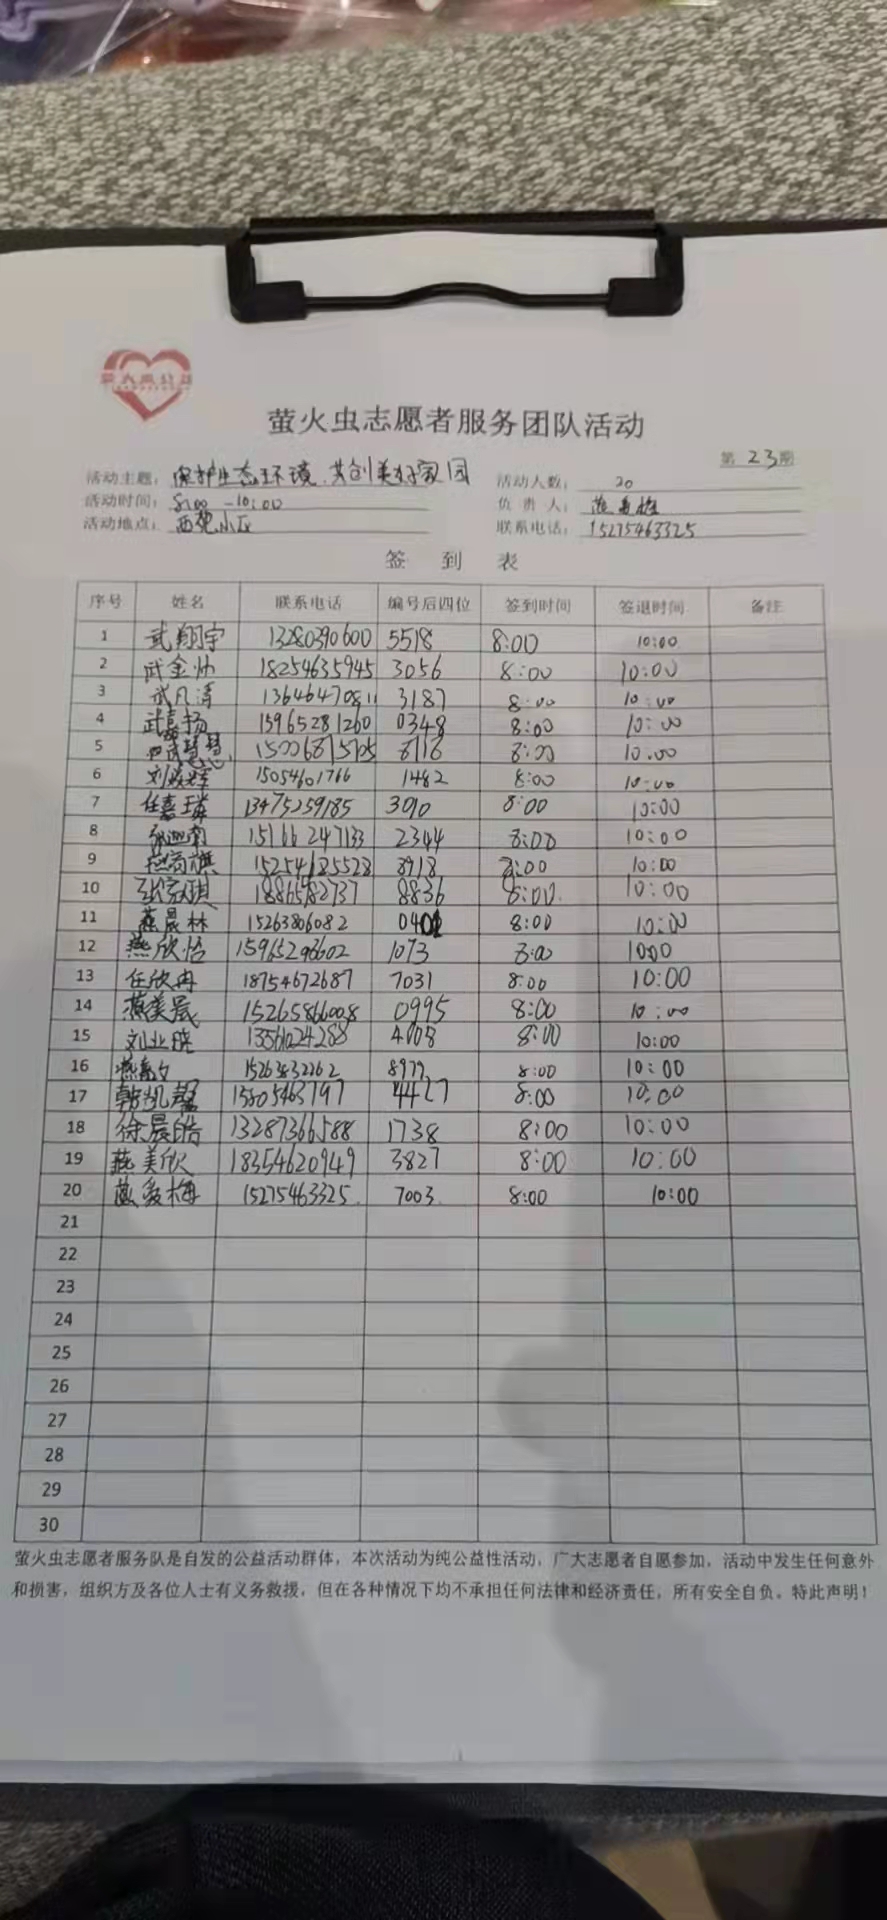 萤火虫公益
萤火虫志愿者服务团队活动
第 23 期
活动主题: 保护生态环境、共创美好家园 活动人数: 20
活动时间: 8:00 -10:00 负 责 人:
活动地点: 西苑小区 联系电话: 15275463325
签 到 表
序号 姓名 联系电话 编号后四位 签到时间 签退时间 备注
1 武翔宇 13280390600 5518 8:00 10:00
2 武金帅 18254635945 3056 8:00 10:00
3 武凡清 13646470811 3187 8:00 10:00
4 武嘉扬 15965281260 0348 8:00 10:00
5 15006815705 8116 8:00 10.00
6 15054601766 1482 8:00 10:00
7 任嘉璘 13475259185 3090 8:00 10:00
8 张迦南 15166247133 2344 8:00 10:00
9 8918 8:00 10:00
10 张家琪 8836 8:00. 10:00
11 燕晨林 15263806082 8:00 10:00
12 燕欣怡 1073 8:00 10:00
13 任欣冉 18754672687 7031 8:00 10:00
14 燕美晨 15265866008 0995 8:00 10:00
15 刘业晓 4008 8:00 10:00
16 15263832262 8979 8:00 10:00
17 韩凯馨 15805463797 4427 8:00 10:00
18 徐晨皓 13287366588 1738 8:00 10:00
19 燕美欣 18354620949 3827 8:00 10:00
20 15275463325. 7003. 8:00 10:00
21
22
23
24
25
26
27
28
29
30
萤火虫志愿者服务队是自发的公益活动群体，本次活动为纯公益性活动，广大志愿者自愿参加，活动中发生任何意外
和损害，组织方及各位人士有义务救援，但在各种情况下均不承担任何法律和经济责任，所有安全自负。特此声明！